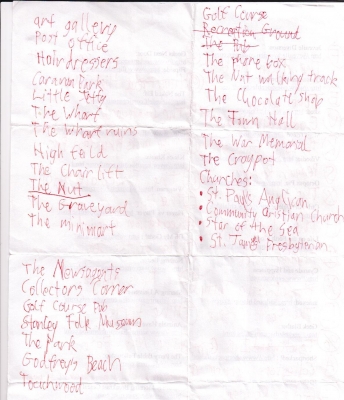 art gallery
Post office
Hairdressers
Caravan Park
Little
The Wharf
The wharf ruins
High feild
The Chair lift
The Nut
The Graveyard
The minimart
The Newsagents
Collectors Corner
Golf Course Pub
Stanley Folk Museum
The Park
Godfreys Beach
Touchwood
Golf Course
Recreation Ground
The Pub
The phone box
The Nut walking track
The Chocolate shop
The Town Hall
The War Memorial
The Craypot
Churches:
• St. Pauls Anglican
• Community Christian Church
• Star of the Sea
• St. James Presbyterian